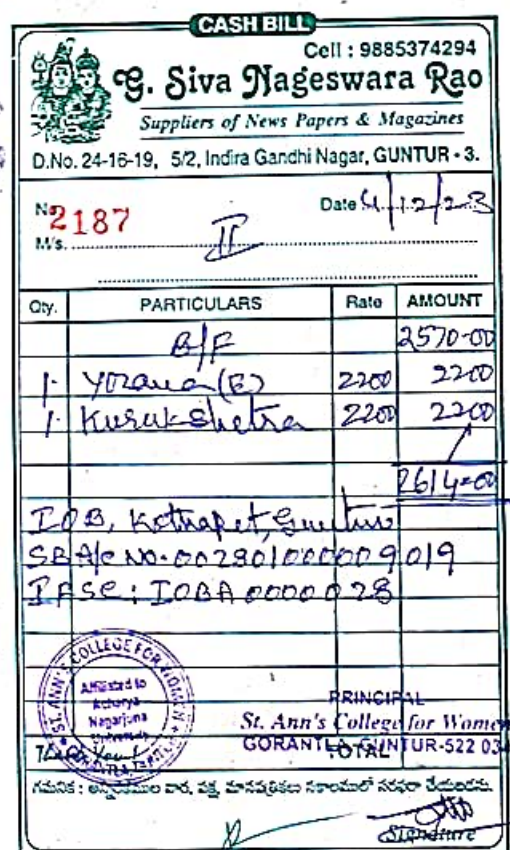 CASH BILL
Cell : 9885374294
G. Siva Nageswara Rao
Suppliers of News Papers & Magazines
D.No. 24-16-19, 5/2, Indira Gandhi Nagar, GUNTUR - 3.
No. 2187 Date 4/12/23
M/s. II
Qty. PARTICULARS Rate AMOUNT
B/F 2570-00
1- Yozana (E) 2200 2200
1- Kurukshetra 2200 2200
2614-00
IOB, Kothapet, Guntur
SB A/c No. 002801000009019
IFSC: IOBA0000028
ST. ANN'S COLLEGE FOR WOMEN
Affiliated to
Acharya
Nagarjuna
University
PRINCIPAL
St. Ann's College for Women
GORANTLA, GUNTUR-522 034
Thank You! TOTAL
గమనిక : అన్నిరకముల వార, పక్ష, మాసపత్రికలు సకాలములో సరఫరా చేయబడును.
Signature